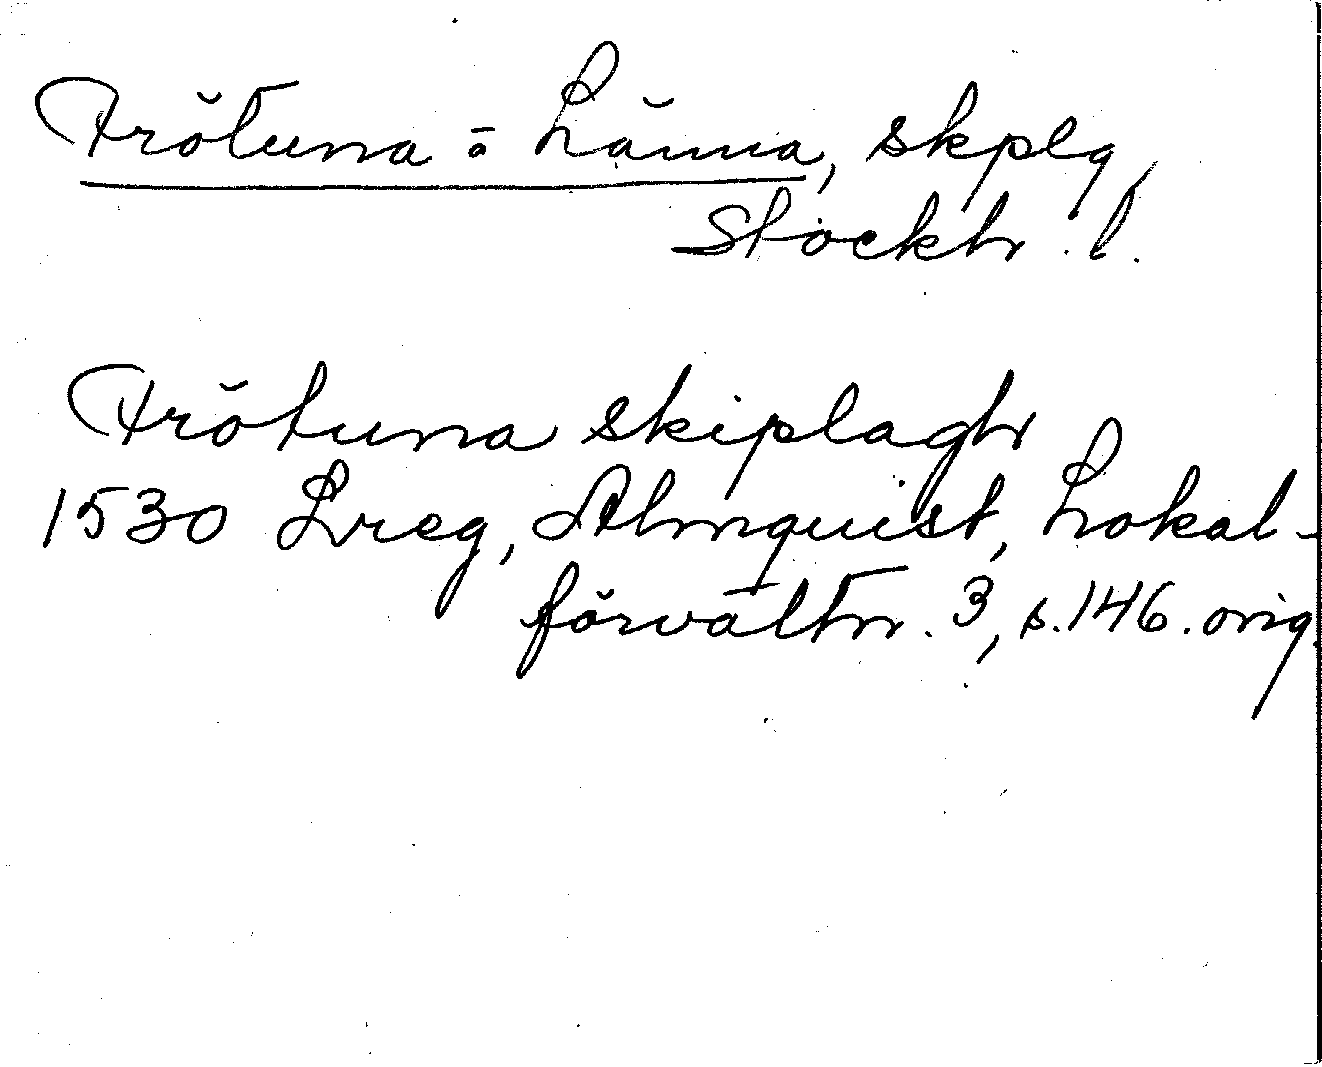 Frötuna o Länna, skplg,
Stockh. l.
Frötuna skiplagh
1530 Lreg, Almquist, Lokal-
förvaltn. 3, s. 146. orig.